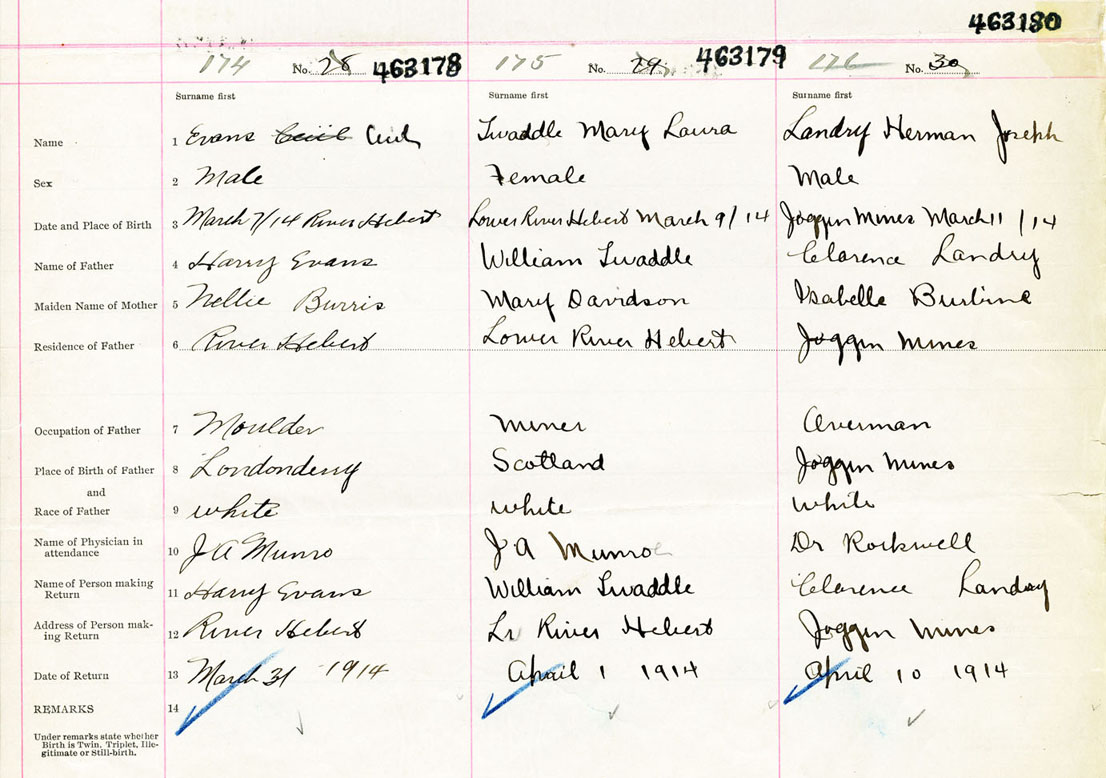 463180
174 No. 28 463178 175 No. 29 463179 176 No. 30
Surname first Surname first Surname first
Name 1 Evans Cecil Cecil Twaddle Mary Laura Landry Herman Joseph
Sex 2 Male Female Male
Date and Place of Birth 3 March 7/14 River Hebert Lower River Hebert March 9/14 Joggin Mines March 11/14
Name of Father 4 Harry Evans William Twaddle Clarence Landry
Maiden Name of Mother 5 Nellie Burris Mary Davidson Isabelle Burbine
Residence of Father 6 River Hebert Lower River Hebert Joggin Mines
Occupation of Father 7 Moulder Miner Overman
Place of Birth of Father 8 Londonderry Scotland Joggin Mines
and
Race of Father 9 White White White
Name of Physician in
attendance 10 J A Munro J A Munroe Dr Rockwell
Name of Person making
Return 11 Harry Evans William Twaddle Clarence Landry
Address of Person mak-
ing Return 12 River Hebert Lr River Hebert Joggin Mines
Date of Return 13 March 31 1914 April 1 1914 April 10 1914
REMARKS 14
Under remarks state whether
Birth is Twin, Triplet, Ille-
gitimate or Still-birth.